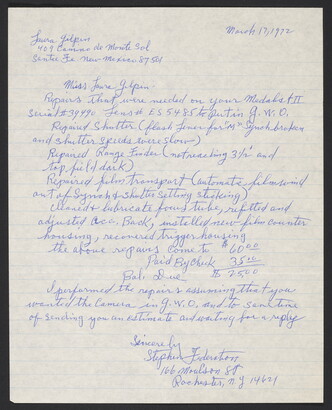 March 17, 1972
Laura Gilpin
409 Camino de Monte Sol
Santa Fe New-Mexico 87501
Miss Laura Gilpin
Repairs that were needed on your Medalist II
Serial #39490 Lens # ES 5485 to put in G.W.O.
Repaired Shutter (flash lever for "M" Synch broken
and shutter speeds were slow)
Repaired Range Finder (not reaching 3½ and
top field dark)
Repaired film Transport (automatic film wind
and Shutter Setting sticking)
Cleaned & lubricate focus tube, refitted and
adjusted Acc. Back, installed new film counter
housing, recovered trigger housing
the above repairs come to $60.00
Paid By Check 35.00
Bal. Due $25.00
I performed the repairs assuming that you
wanted the Camera in G.W.O. and to save time
of sending you an estimate and waiting for a reply
Sincerely
Stephen
166 Moulson St
Rochester, NY 14621